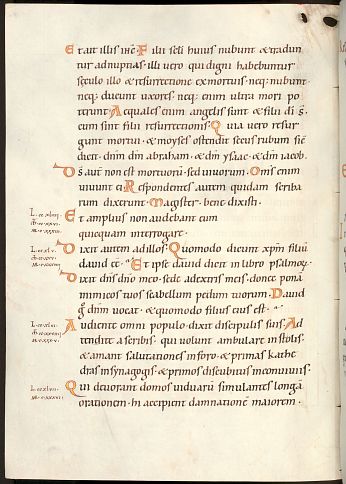 Et ait illis ihc̄. Filii sęli huius nubunt & tradun
tur ad nuptias. illi vero qui digni habebuntur
sęculo illo & resurrectione ex mortuis. neq; nubunt.
neq; ducunt uxores. neq; enim ultra mori po
terunt. Aequales enim angelis sunt & filii dī ġ.
cum sint filii resurrectionis. Quia vero resur
gunt mortui. & moyses ostendit secus rubum sic̄
dicit. dn̄m dm̄ abraham. & dm̄ ysaac. & dm̄ iacob.
Ds̄ aut̄ non est mortuorū. sed uiuorum. Om̄s enim
uiuunt ei. Respondentes autem quidam scriba
rum dixerunt. Magister. bene dixisti.
Et amplius non audebant eum
quicquam interrogare.
Dixit autem ad illos. Quomodo dicunt xp̄m filiū
dauid eē. Et ipse dauid dicit in libro psalmoꝝ.
Dixit dn̄s dn̄o meo. sede a dextris meis. donec pona
inimicos tuos scabellum pedum tuorum. Dauid
ġ dn̄m vocat. & quomodo filius eius est.
Audiente omni populo. dixit discipulis suis. Ad
tendite a scribis. qui uolunt ambulare in stolis.
& amant salutationes in foro. & primas kathe
dras in synagogis. & primos discubitus in conuiuiis.
Qui deuorant domos viduarū simulantes longā
orationem. hi accipient damnationē maiorem.